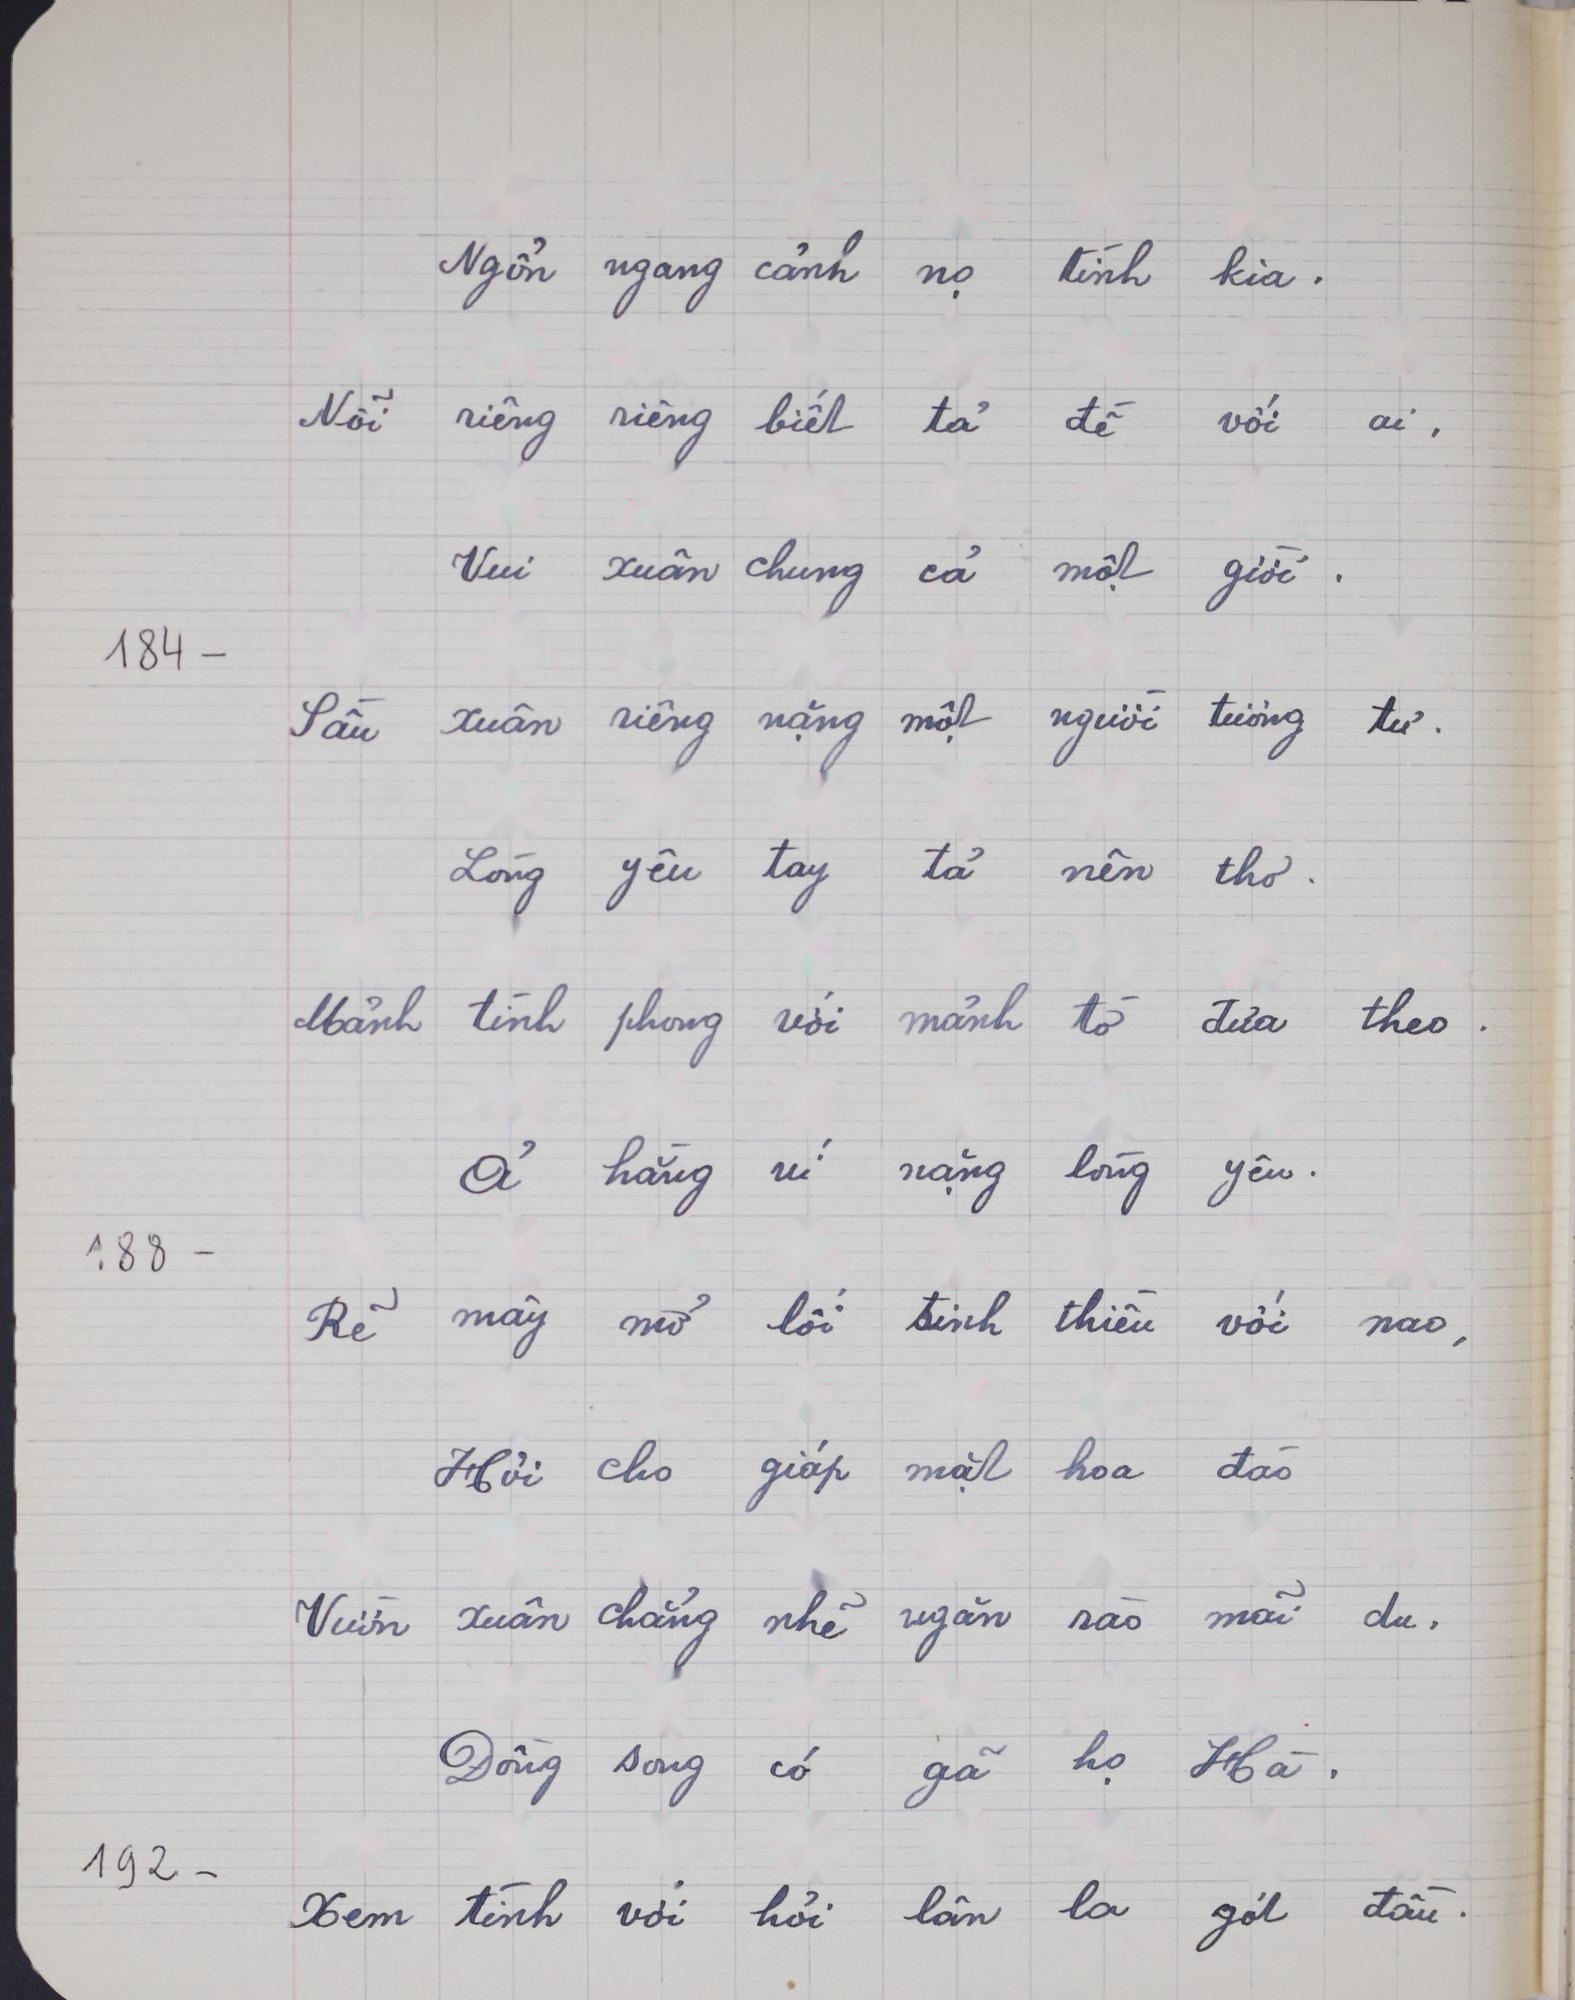 Ngổn ngang cảnh nọ tình kia.
Nỗi riêng riêng biết tả đề với ai,
Vui xuân chung cả một giời.
184-
Sầu xuân riêng nặng một người tương tư.
Lòng yêu tay tả nên thơ.
Mảnh tình phong với mảnh tờ đưa theo.
Ả hằng ví nặng lòng yêu.
188-
Rẽ mây mở lối tinh thiều với nao,
Hỏi cho giáp mặt hoa đào
Vườn xuân chẳng nhẽ ngăn rào mãi du.
Đồng song có gã họ Hà.
192-
Xem tình với hỏi lân la gót đầu.